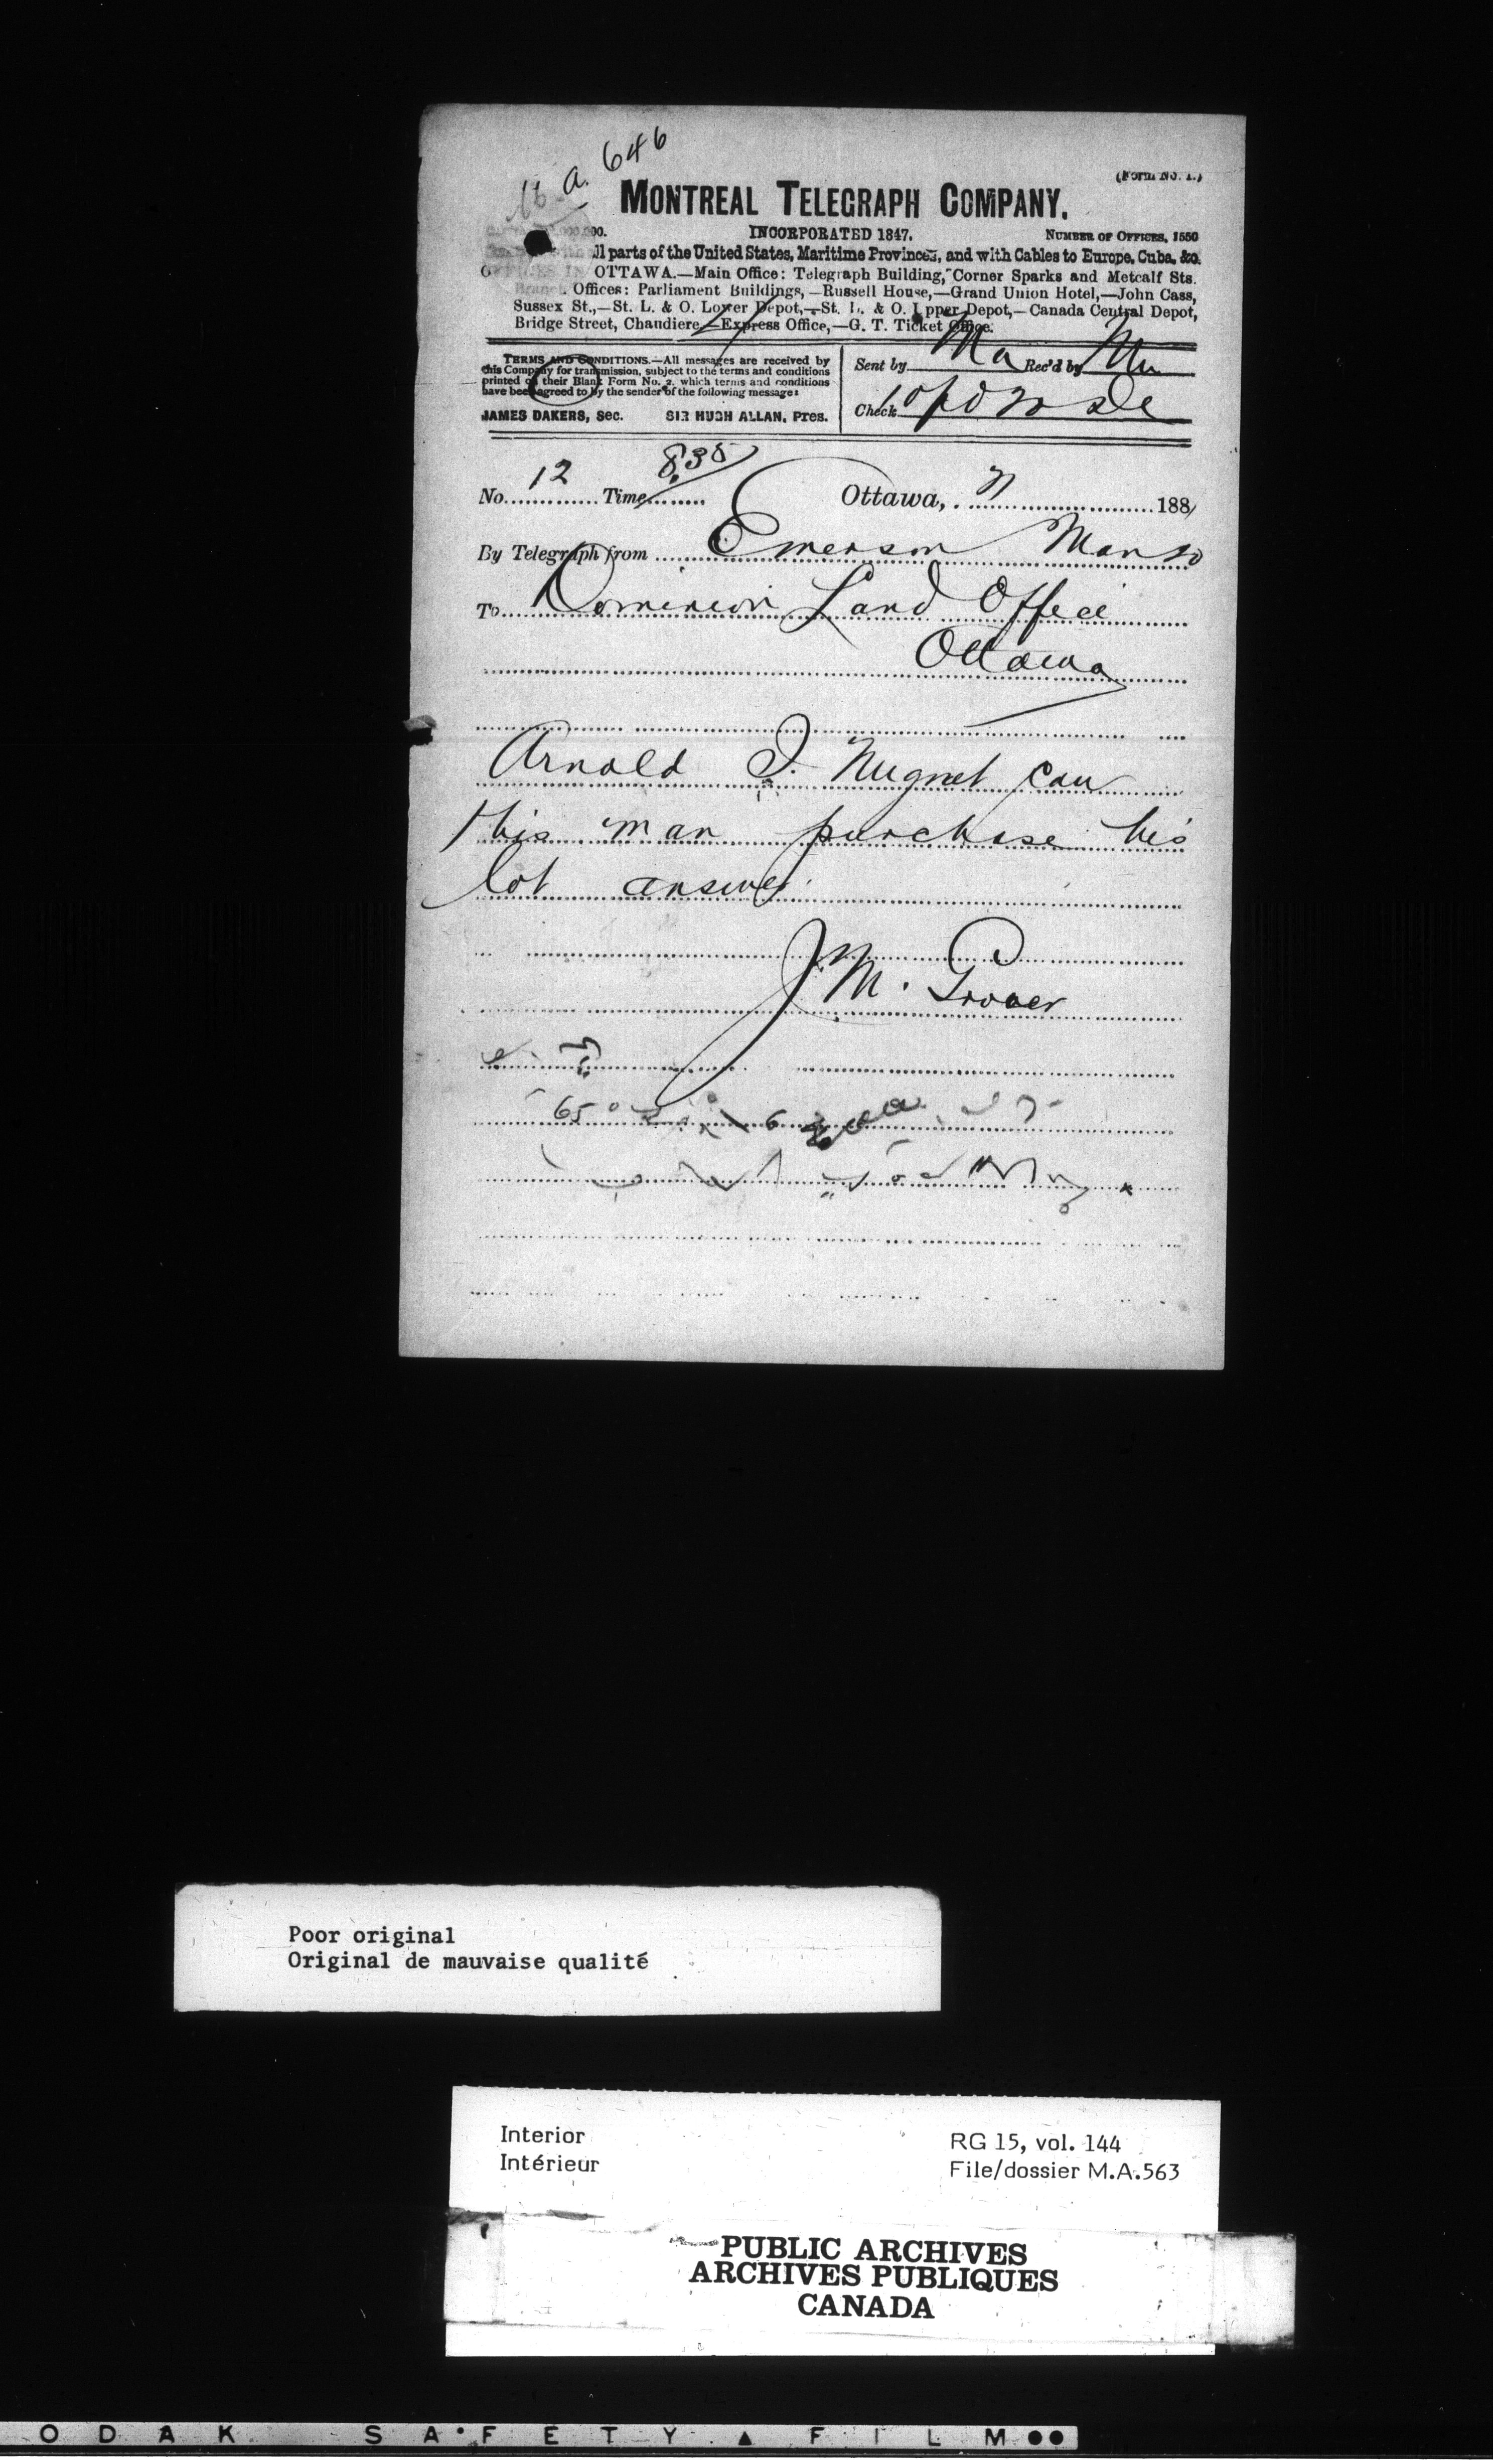 a. 646
(FORM NO. 1.)
MONTREAL TELEGRAPH COMPANY.
INCORPORATED 1847.
NUMBER OF OFFICES, 1550
all parts of the United States, Maritime Provinces, and with Cables to Europe, Cuba, &c.
OFFICES IN OTTAWA.—Main Office: Telegraph Building, Corner Sparks and Metcalf Sts.
Branch Offices: Parliament Buildings,—Russell House,—Grand Union Hotel,—John Cass,
Sussex St.,—St. L. & O. Lower Depot,—St. L. & O. Upper Depot,—Canada Central Depot,
Bridge Street, Chaudiere,—Express Office,—G. T. Ticket Office.
TERMS AND CONDITIONS.—All messages are received by
this Company for transmission, subject to the terms and conditions
printed on their Blank Form No. 2, which terms and conditions
have been agreed to by the sender of the following message:
JAMES DAKERS, Sec. SIR HUGH ALLAN, Pres.
Sent by Rec'd by
Check
No. 12 Time 8.35 Ottawa, 188
By Telegraph from Emerson Man
To Dominion Land Office
Ottawa
Arnold J. Nugnet can
this man purchase his
lot answer
J. M. Grover
65
Poor original
Original de mauvaise qualité
Interior
Intérieur
RG 15, vol. 144
File/dossier M.A.563
PUBLIC ARCHIVES
ARCHIVES PUBLIQUES
CANADA
ODAK SAFETY FILM